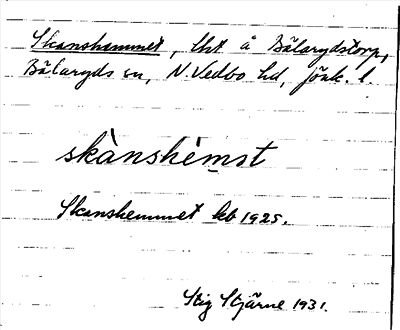 Skanshammet, lht å Bälarydstorp,
Bälaryds sn, N. Vedbo hd, Jönk. l.
skànshèmst
Skanshemmet kb 1925.
Stig Stjärne 1931.